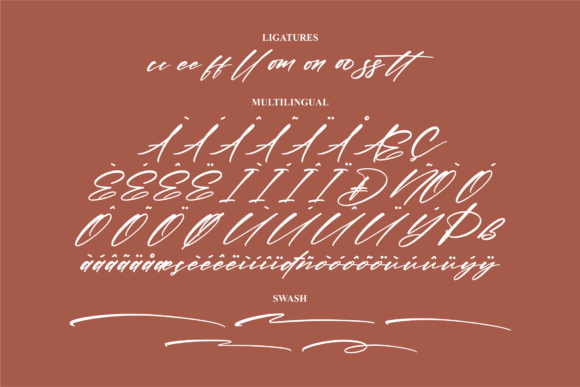 LIGATURES
cc ee ff ll om on oo ss tt
MULTILINGUAL
À Á Â Ã Ä Å Æ Ç
È É Ê Ë Ì Í Î Ï Ð Ñ Ò Ó
Ô Õ Ö Ø Ù Ú Û Ü Ý Þ ß
àáâãäåæçèéêëìíîïđñòóôõöùúûüýÿ
SWASH